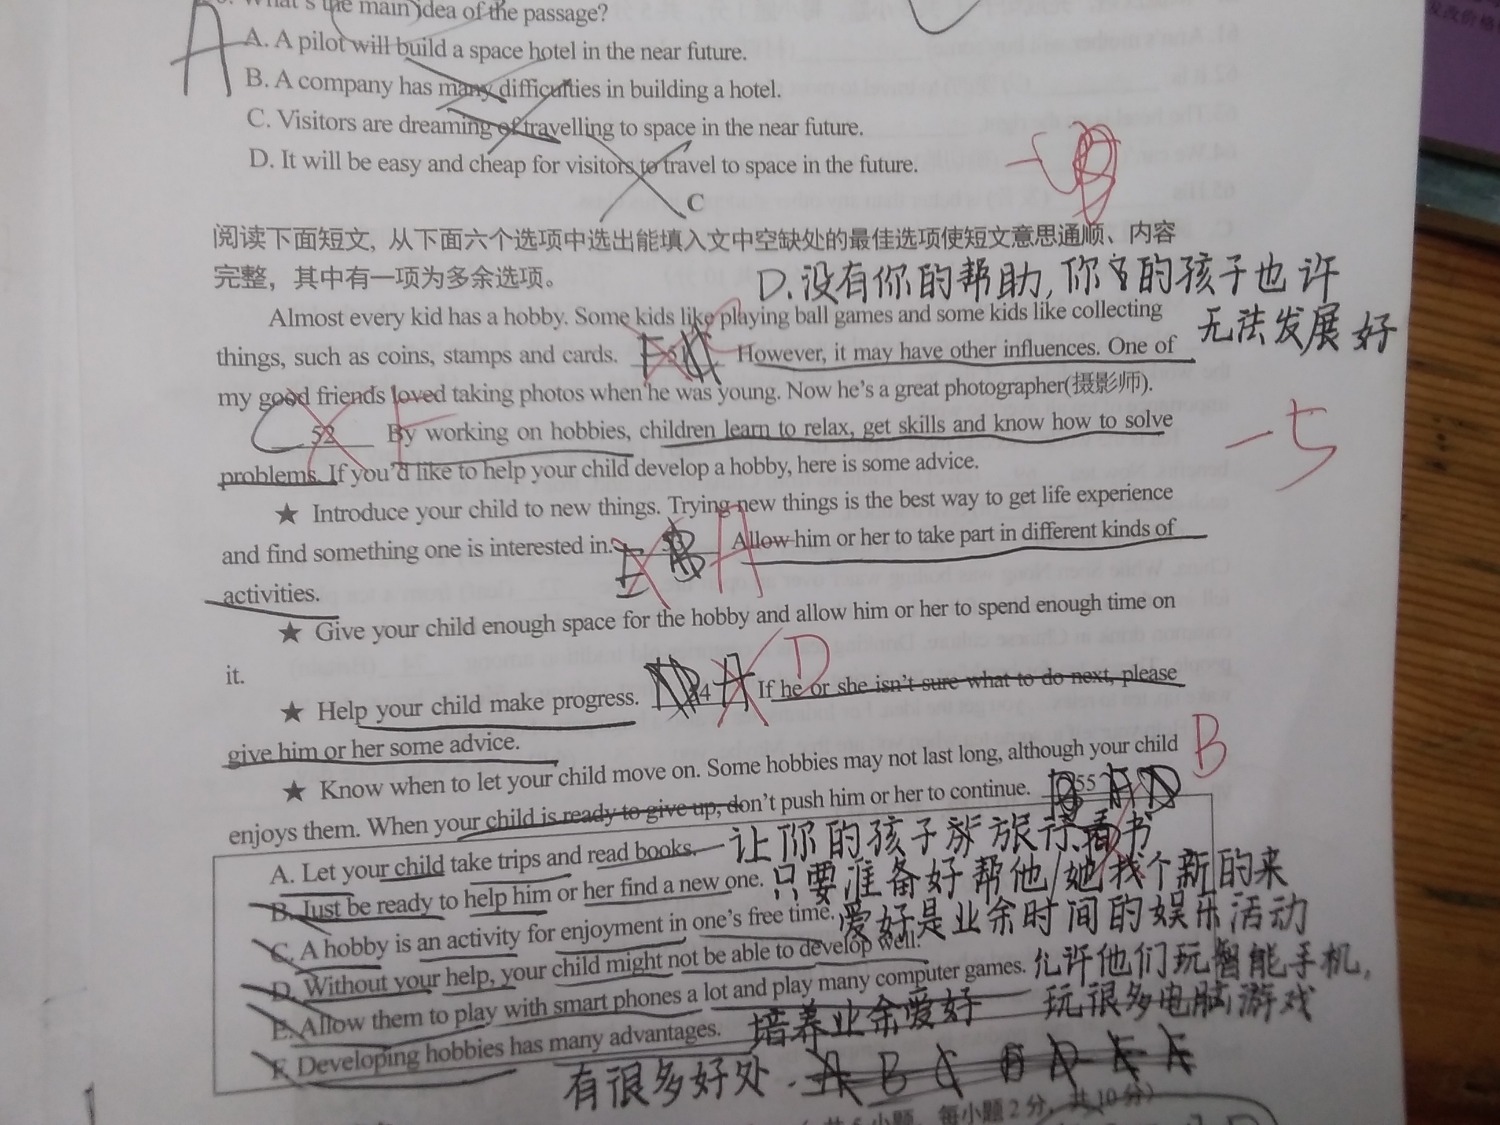 What's the main idea of the passage?
A
A. A pilot will build a space hotel in the near future.
B. A company has many difficulties in building a hotel.
C. Visitors are dreaming of travelling to space in the near future.
D. It will be easy and cheap for visitors to travel to space in the future.
C
阅读下面短文, 从下面六个选项中选出能填入文中空缺处的最佳选项使短文意思通顺、内容
完整，其中有一项为多余选项。
D.没有你的帮助,你的孩子也许
无法发展好
Almost every kid has a hobby. Some kids like playing ball games and some kids like collecting
things, such as coins, stamps and cards. F C However, it may have other influences. One of
my good friends loved taking photos when he was young. Now he's a great photographer(摄影师).
C 52 F By working on hobbies, children learn to relax, get skills and know how to solve
-5
problems. If you'd like to help your child develop a hobby, here is some advice.
★ Introduce your child to new things. Trying new things is the best way to get life experience
and find something one is interested in. E A Allow him or her to take part in different kinds of
activities.
★ Give your child enough space for the hobby and allow him or her to spend enough time on
it.
★ Help your child make progress. 54 A D If he or she isn't sure what to do next, please
give him or her some advice.
★ Know when to let your child move on. Some hobbies may not last long, although your child
enjoys them. When your child is ready to give up, don't push him or her to continue. 55 B
A. Let your child take trips and read books. 让你的孩子旅行看书
B. Just be ready to help him or her find a new one. 只要准备好帮他/她找个新的来
C. A hobby is an activity for enjoyment in one's free time. 爱好是业余时间的娱乐活动
D. Without your help, your child might not be able to develop well.
E. Allow them to play with smart phones a lot and play many computer games. 允许他们玩智能手机,
玩很多电脑游戏
F. Developing hobbies has many advantages. 培养业余爱好
有很多好处.
A B C D E F
每小题2分，共10分）